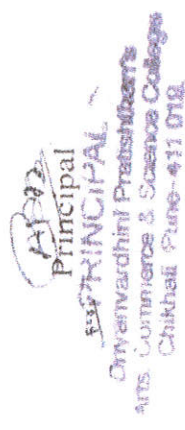 Principal
PRINCIPAL
Dnyanvardhini Pratishthan's
Arts, Commerce & Science College
Chikhali Pune-411 019.